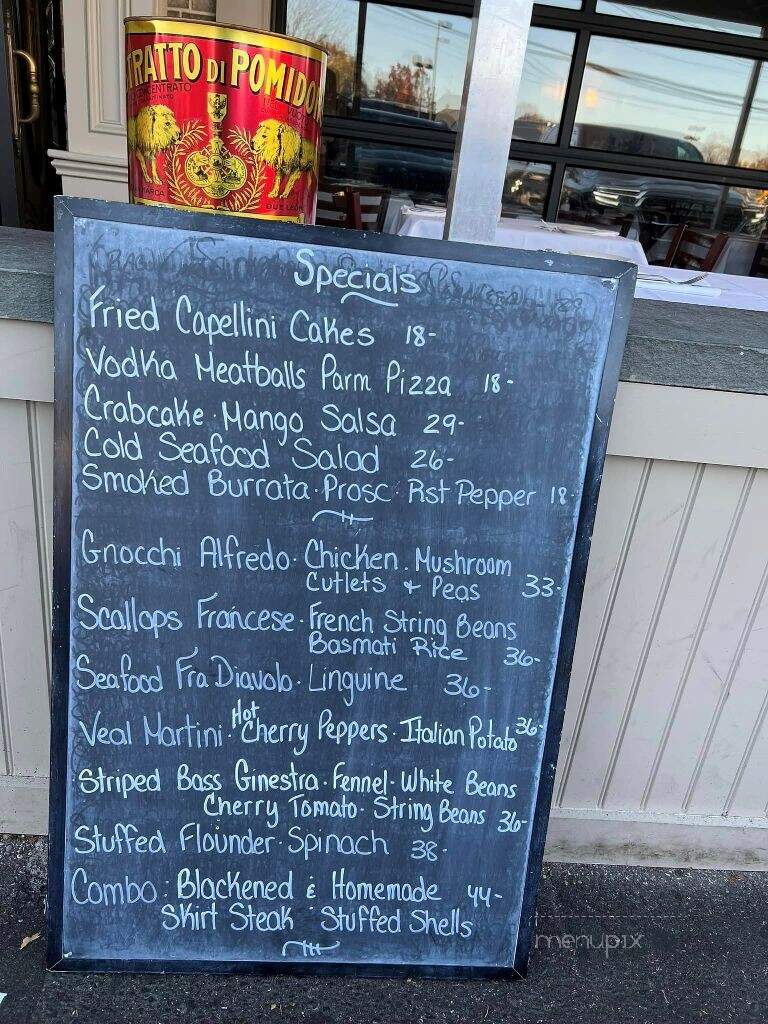 TRATTO DI POMIDO
CONCENTRATO
Specials
Fried Capellini Cakes 18-
Vodka Meatballs Parm Pizza 18-
Crabcake · Mango Salsa 29-
Cold Seafood Salad 26-
Smoked Burrata · Prosc · Rst Pepper 18-
Gnocchi Alfredo · Chicken · Mushroom
Cutlets + Peas 33-
Scallops Francese · French String Beans
Basmati Rice 36-
Seafood Fra Diavolo · Linguine 36-
Veal Martini · Hot Cherry Peppers · Italian Potato 36-
Striped Bass Ginestra · Fennel · White Beans
Cherry Tomato · String Beans 36-
Stuffed Flounder · Spinach 38-
Combo : Blackened & Homemade 44-
Skirt Steak Stuffed Shells
menupix